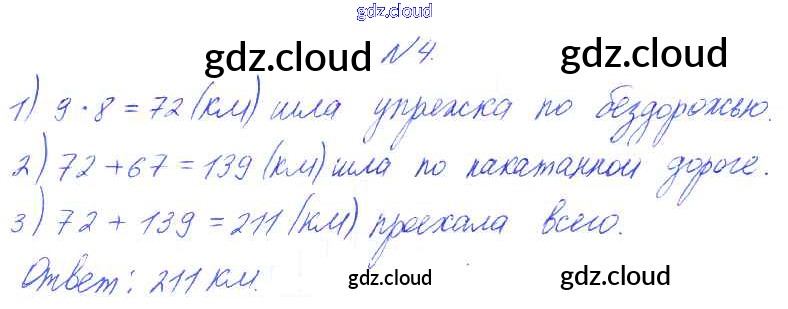 gdz.cloud
gdz.cloud № 4. gdz.cloud
1) 9 · 8 = 72 (км) шла упряжка по бездорожью.
2) 72 + 67 = 139 (км) шла по накатанной дороге.
3) 72 + 139 = 211 (км) проехала всего.
Ответ: 211 км.
gdz.cloud gdz.cloud
gdz.cloud